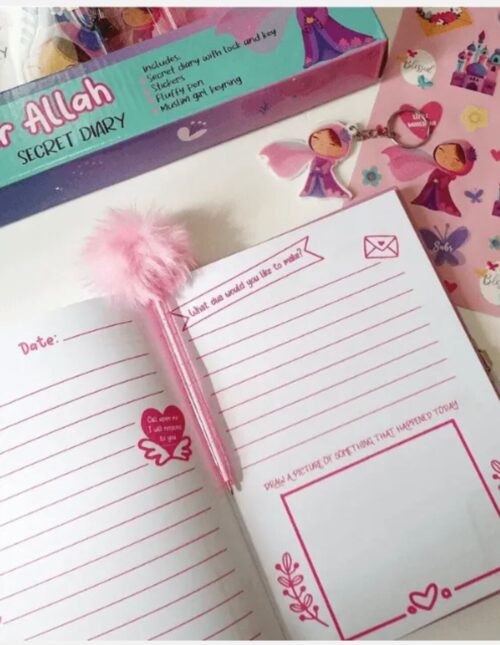 r Allah
SECRET DIARY
Includes:
Secret diary with lock and key
Stickers
Fluffy pen
Muslim girl keyring
Blessed
Sabr
What dua would you like to make?
Date:
Call upon me
I will respond
to you
DRAW A PICTURE OF SOMETHING THAT HAPPENED TODAY